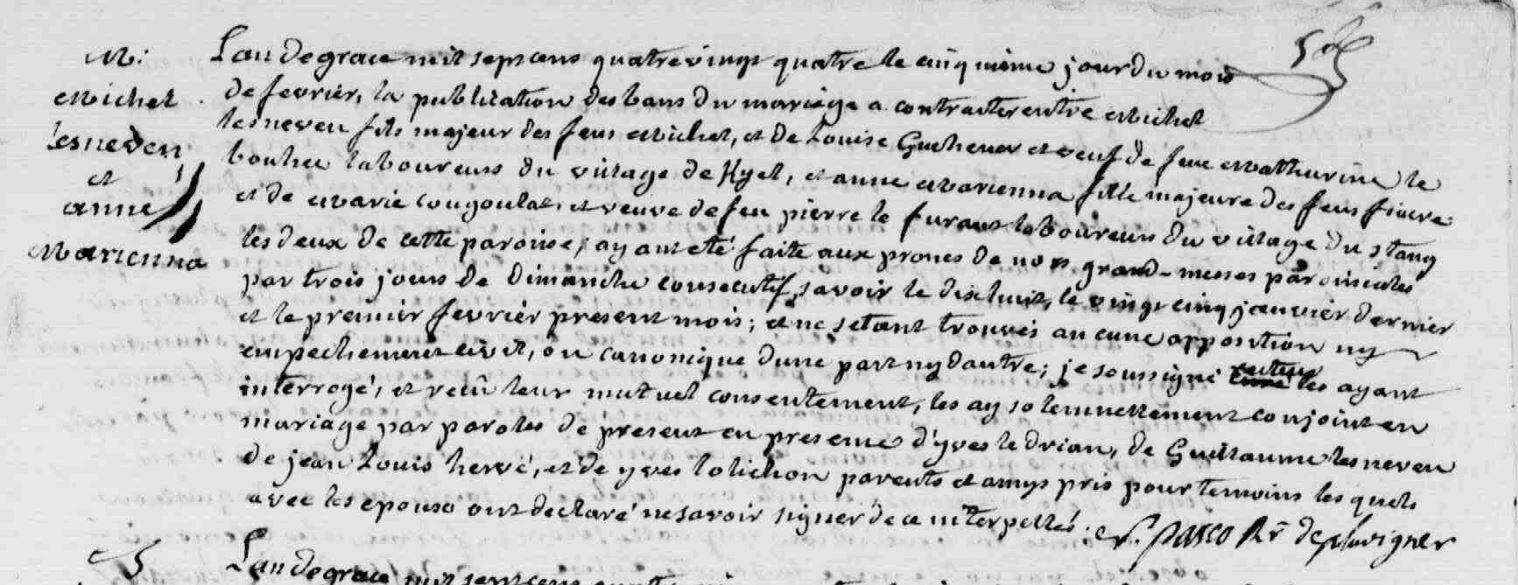 M:
Michel
lesneven
et
anne
Marienna
L'an de grace mil sept cens quatre vingt quatre le cinquieme jour du mois
de fevrier, la publication des bans du mariage a contracter entre Michel
lesneven fils majeur des feus Michel, et de Louise Guehenec et veuf de feue Mathurine le
bouhec laboureurs du village de Kyel, et anne Marienna fille majeure des feus
et de Marie cougoulat, et veuve de feu pierre le furaut laboureurs du village du stang
les deux de cette paroisse, ayant eté faite aux prones de nos grand-messes paroissiales
par trois jours de Dimanche consecutifs, savoir le dixhuit, le vingt cinq janvier dernier
et le premier fevrier present mois; et ne s'etant trouvés aucune opposition ny
empechement civil, ou canonique d'une part ny d'autre; je soussigné recteur les ayant
interrogé, et recû leur mutuel consentement, les ay solemnellement conjoint en
mariage par paroles de present en presence d'yves le drian, de Guillaume lesneven
de jean Louis hervé, et de yves lolichon parents et amys pris pour temoins les quels
avec les epoux ont declaré ne savoir signer de ce interpellés. pasco Rr de pluvigner
L'an de grace mil sept cens